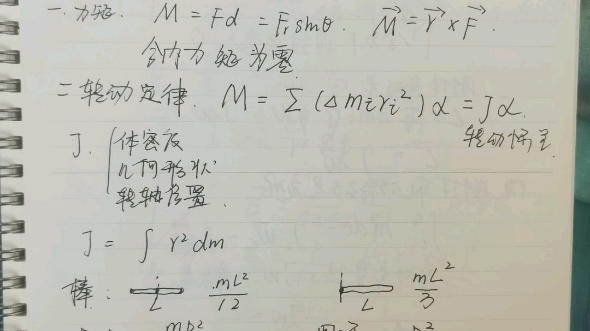 一.力矩. M = Fd = Frsinθ. M⃗ = r⃗ × F⃗.
合内力矩为零
二转动定律. M = Σ (Δmiri²)α = Jα.
转动惯量
J. 体密度
几何形状
转轴位置.
J = ∫ r² dm
棒: L mL²/12 L mL²/3